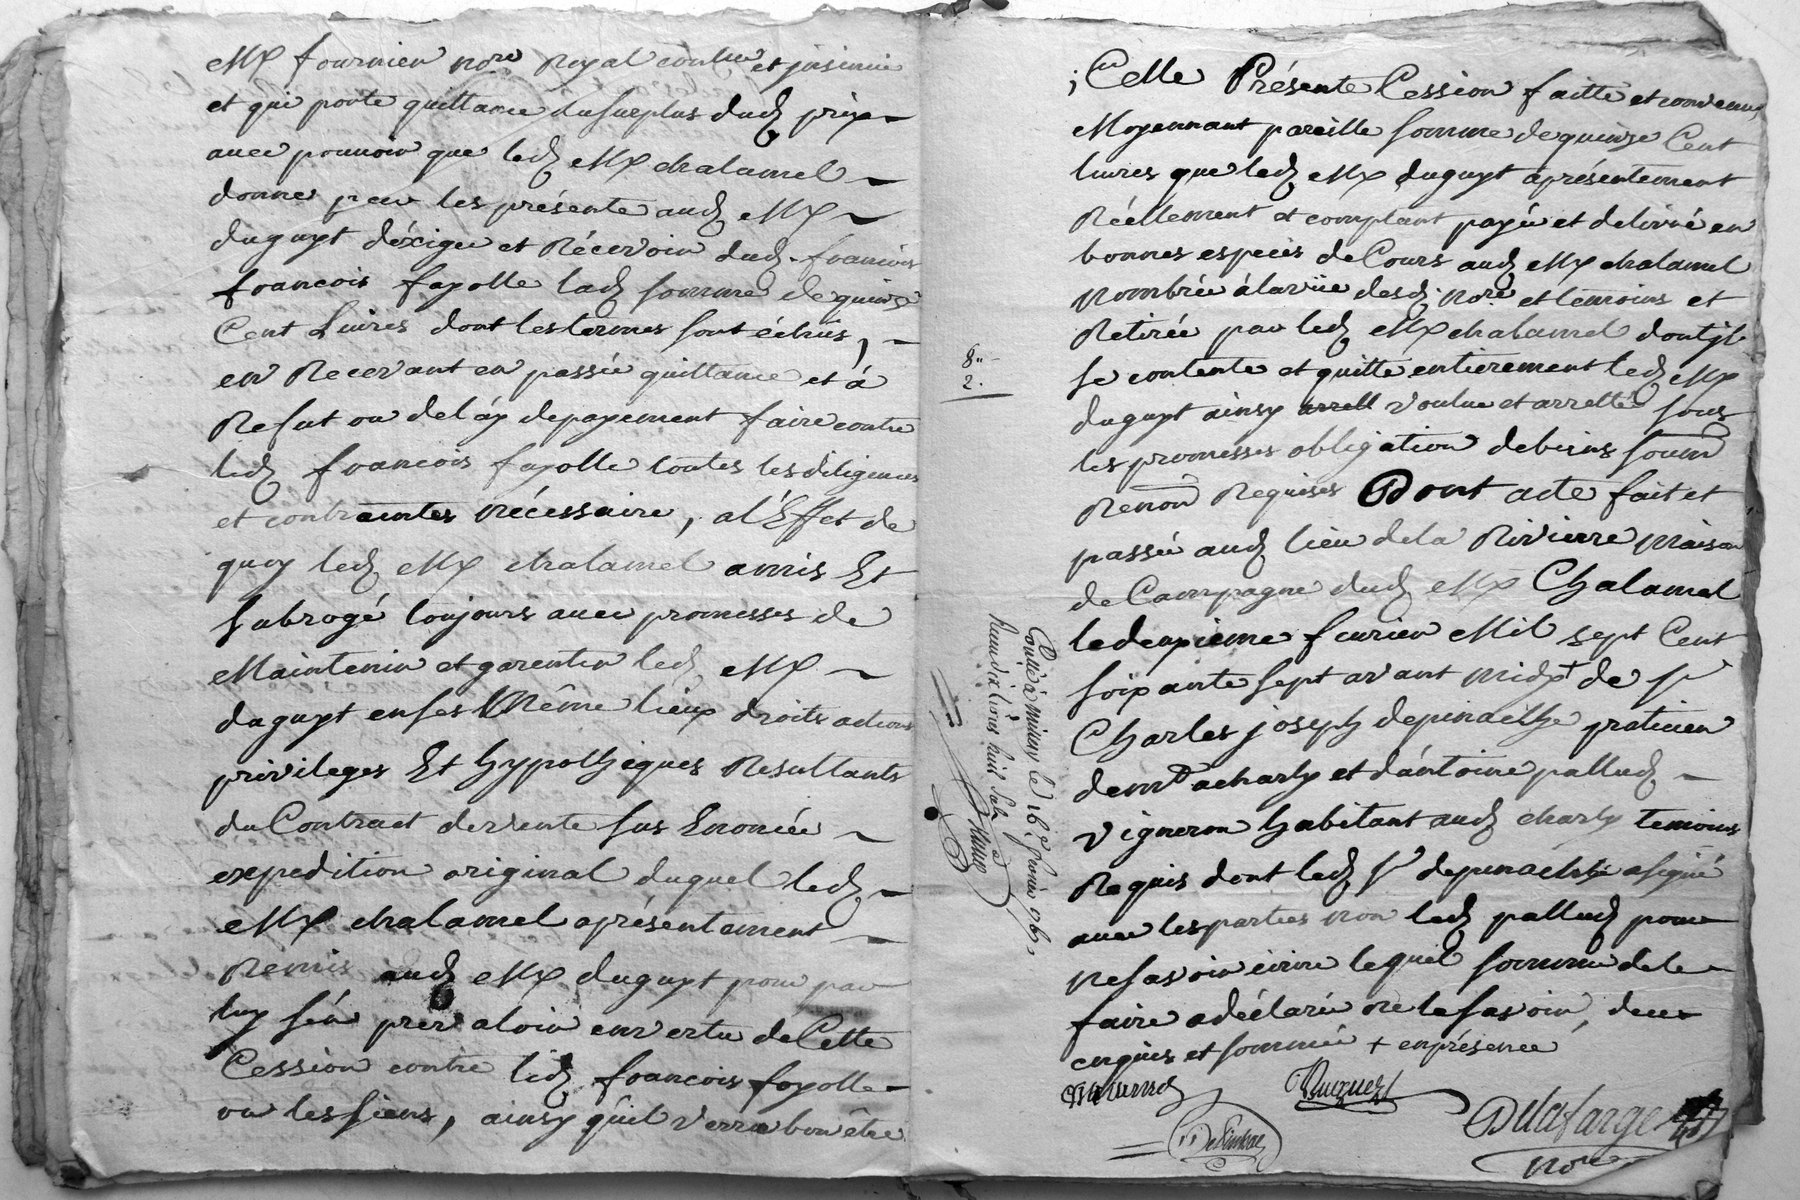 Mr fournier nore Royal controllé et jnsinué
et qui porte quittance du surplus dud prix
avec pouvoir que led Mr chalamel
donne par les présente aud Mr
duguyt déxiger et Récevoir dud. francois
francois fayolle lad somme de quinze
Cent Livres dont les termes sont échus,
en Recevant en passée quittance et à
Refut ou delay de payement faire contre
led francois fayolle toutes les diligences
et contraintes nécessaire, al'Effet de
quoy led Mr chalamel amis Et
subrogé toujours avec promesses de
Maintenir et garentir led Mr
duguyt en ses Même lieux droits actions
privileges Et hypothéques Resultants
du Contract de vente sus Enoncée
expedition original duquel led
Mr chalamel aprésentement
Remis aud Mr duguyt pour par
luy s'én prévaloir en vertu de Cette
Cession contre led francois fayolle
ou les siens, ainsy qûil verra bon être
; Cette Présente Cession faitte et convenue
Moyennant pareille somme de quinze Cent
livres que led Mr duguyt aprésentement
Réellement et comptant payée et delivrée en
bonnes especes de Cours aud Mr chalamel
Nombrée à la vüe desd. nore et témoins et
Retirée par led Mr chalamel dont jl
se contente et quitte entierement led Mr
duguyt ainsy arrett voulue et arretté sous
les promesses obligation de biens soum
Renon Requises Dont acte fait et
passée aud lieu de la Rivierre maison
de Campagne dud Mr Chalamel
le deuxieme fevrier Mil sept Cent
soixante sept avant midy + de sr
Charles joseph depinaithe praticien
demt a charly et d'antoine pallud
vigneron habitant aud charly temoins
Requis dont led sr depinaithe a signé
avec les parties non led pallud pour
ne savoir écrire lequel sommé de le
faire a déclaré ne le savoir, de ce
enquis et sommé + en présence
8"
2.
Conllé à millery le 16e fevrier 1767
Reçu dix livres huit sols
Duguyt
Delafarge
nore